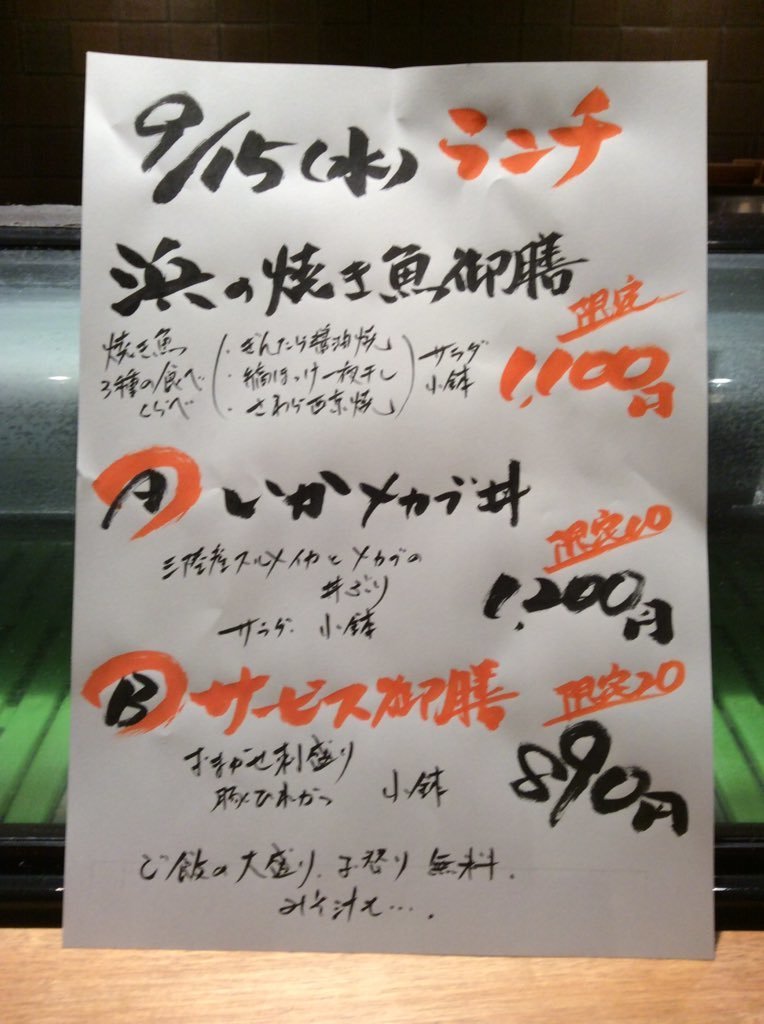 9/15(水) ランチ
浜の焼き魚御膳
限定
1,100円
焼き魚
3種の食べ
くらべ
・ぎんだら醤油焼
・縞ほっけ一夜干し
・さわら西京焼
サラダ
小鉢
A いかメカブ丼
限定10
1,200円
三陸産スルメイカとメカブの
丼ぶり
サラダ 小鉢
B サービス御膳
限定20
890円
おまかせ刺盛り
豚ひれかつ 小鉢
ご飯の大盛り、お替り 無料.
みそ汁も….